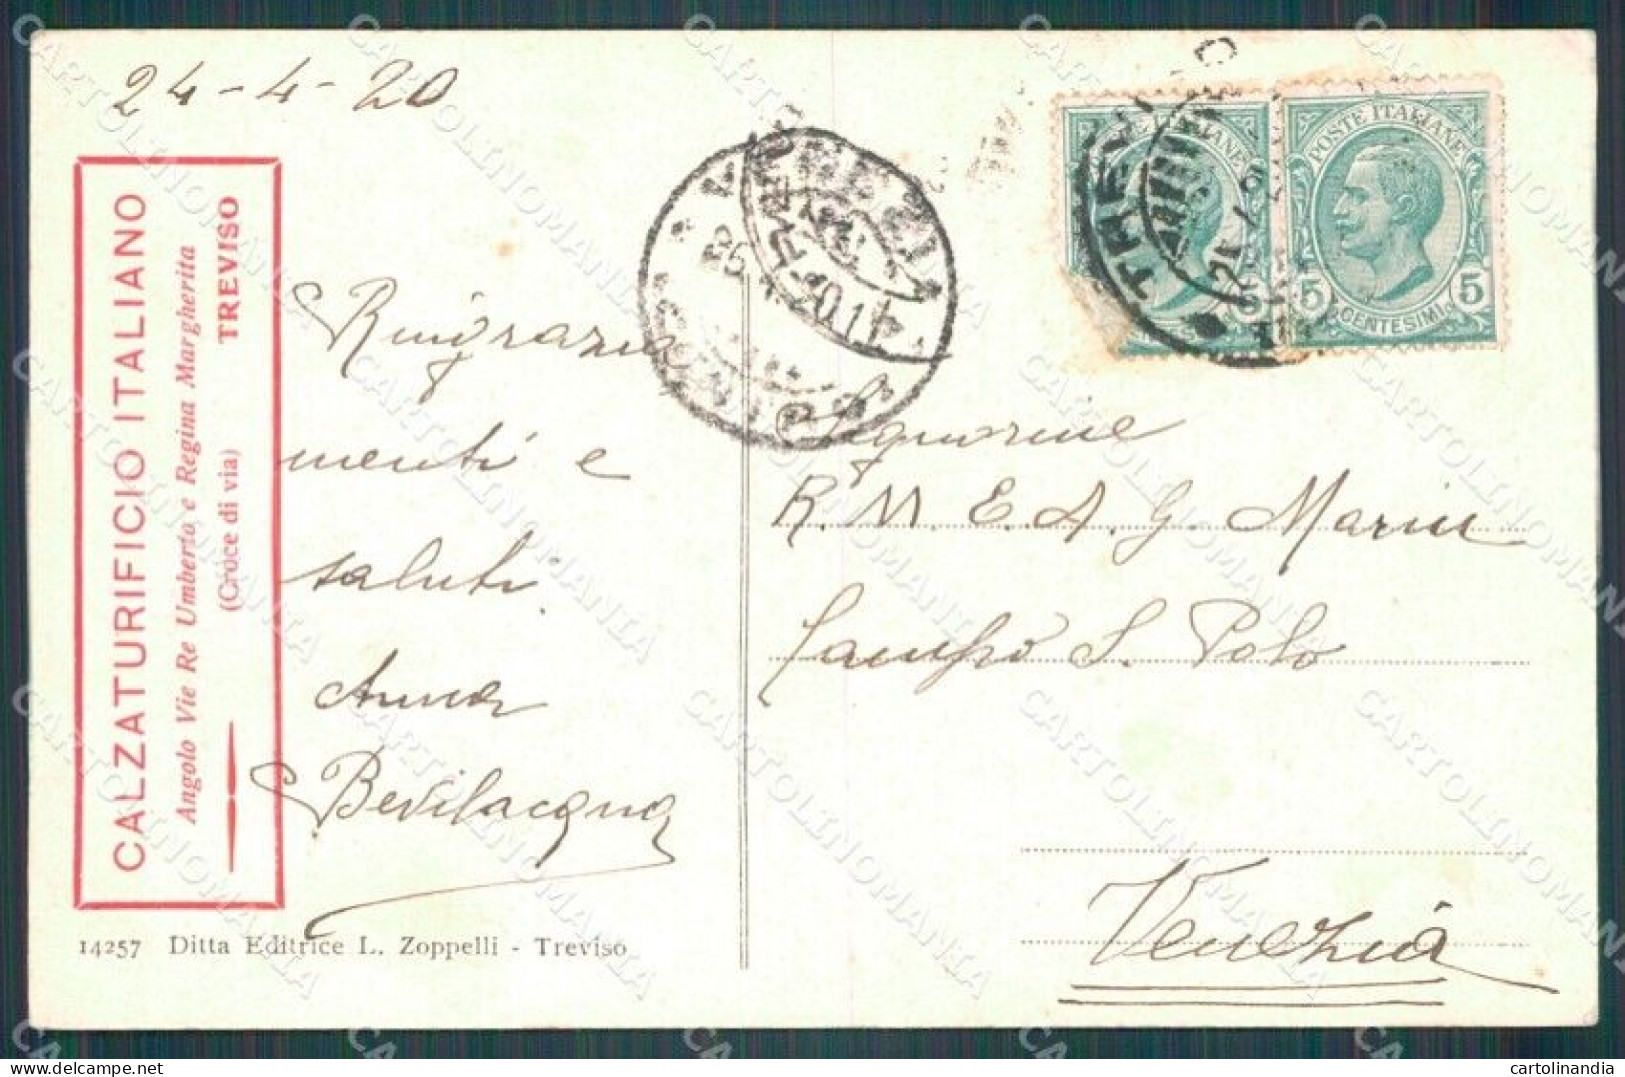 24-4-20
CALZATURIFICIO ITALIANO
Angolo Vie Re Umberto e Regina Margherita
(Croce di via) TREVISO
Ringrazia
menti e
saluti
Anna
Bevilacqua
14257 Ditta Editrice L. Zoppelli - Treviso
POSTE ITALIANE
5 5
CENTESIMI
5
TREVISO
VENEZIA
20.14
Signorine
R. M. E. A. G. Marin
Campo S. Polo
Venezia
CARTOLINOMANIA
cartolinandia